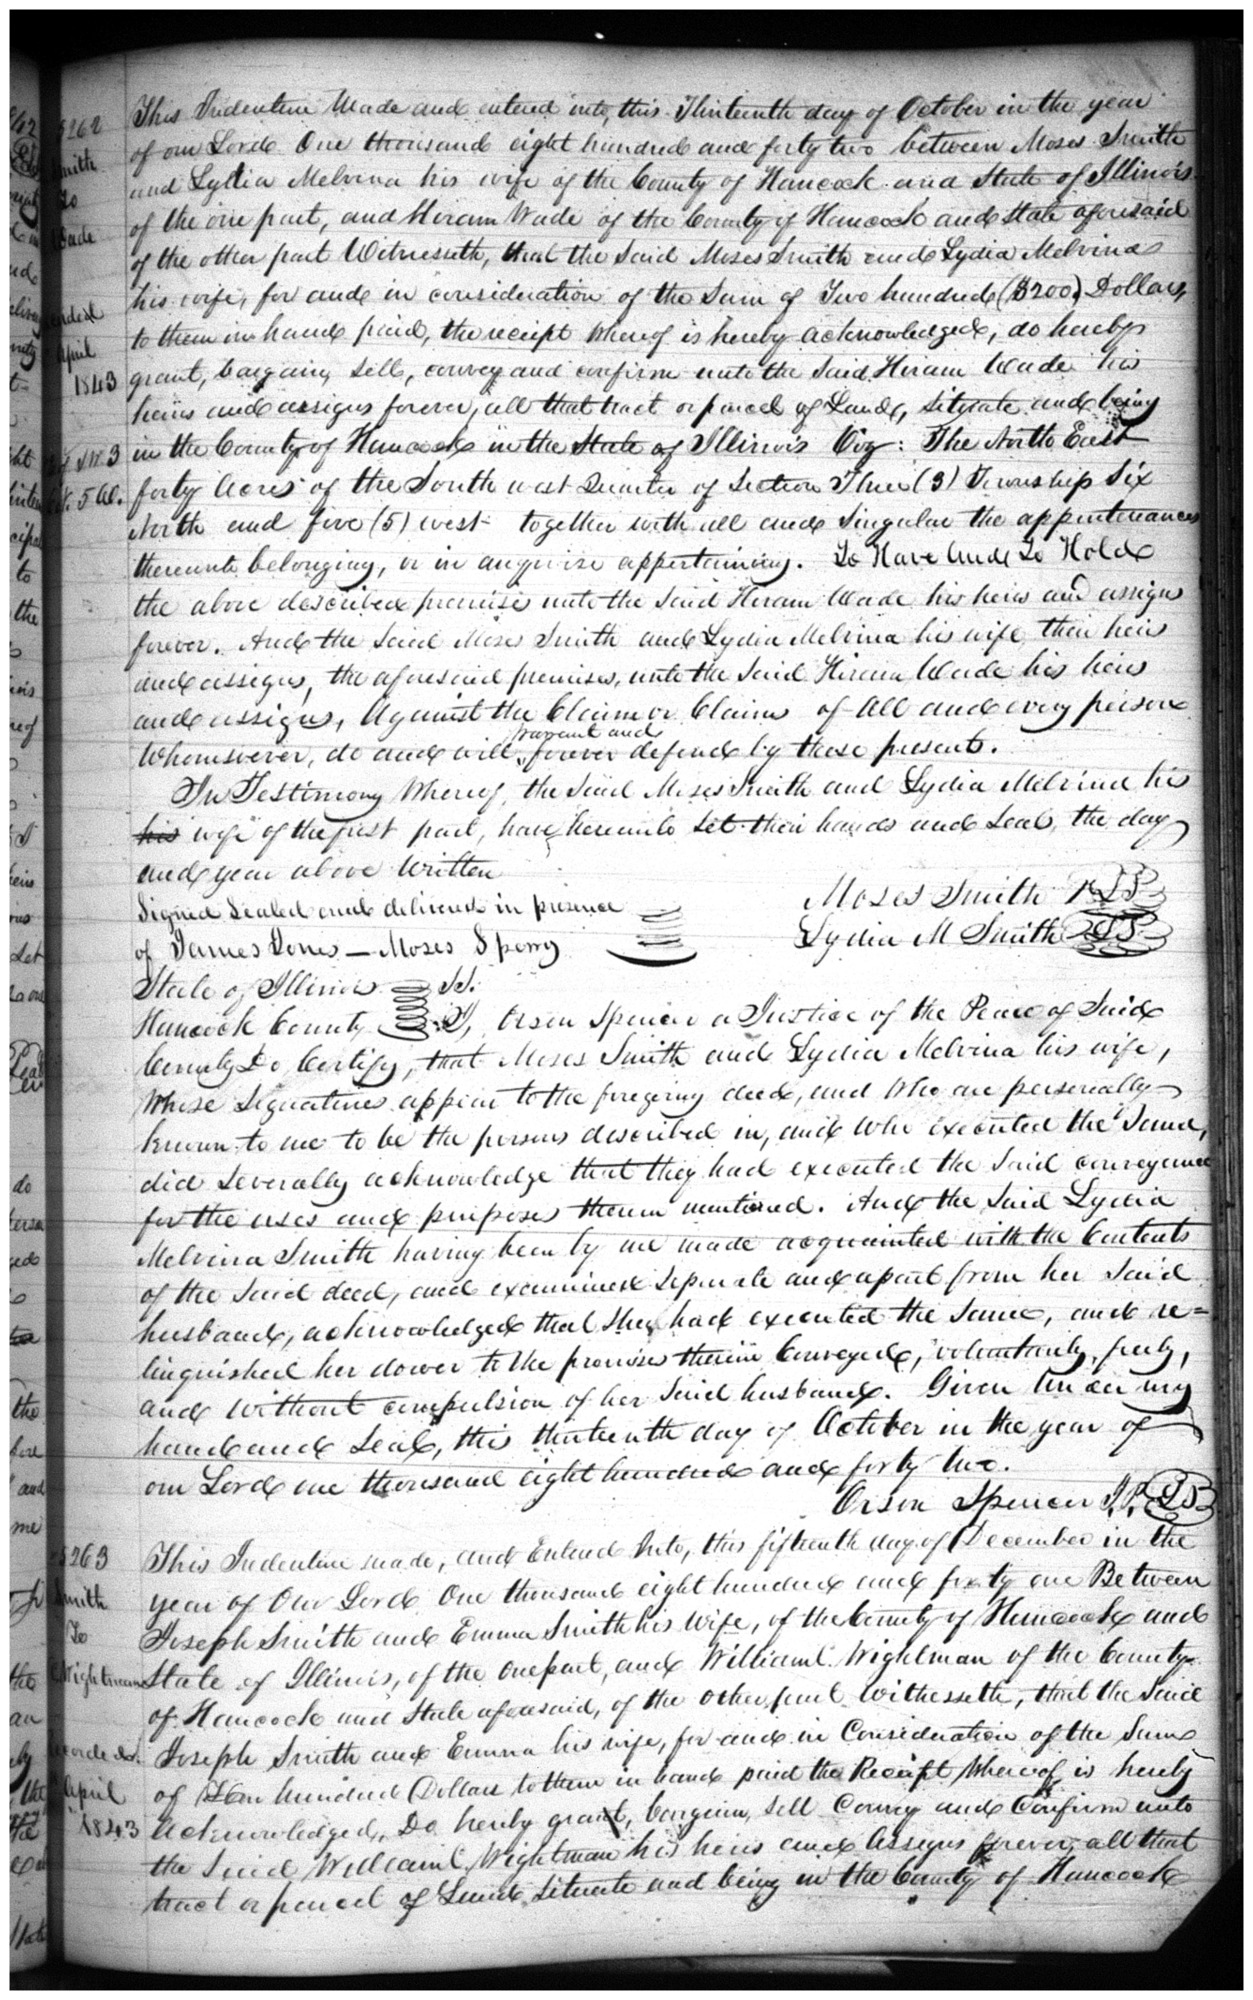 5262
Smith
To
Wade
April
1843
This Indenture Made and entered into, this Thirteenth day of October in the year
of our Lord One thousand eight hundred and forty two between Moses Smith
and Lydia Melvina his wife of the County of Hancock and State of Illinois
of the one part, and Hiram Wade of the County of Hancock and State aforesaid
of the other part Witnesseth, that the Said Moses Smith and Lydia Melvina
his wife, for and in consideration of the Sum of Two hundred ($200) Dollars,
to them in hand paid, the receipt Whereof is hereby acknowledged, do hereby
grant, bargain, Sell, convey and confirm unto the Said Hiram Wade his
heirs and assigns forever, all that tract or parcel of Land, Situate and being
in the County of Hancock in the State of Illinois Viz: The North East
forty Acres of the South west Quarter of Section Three (3) Township Six
North and five (5) west together with all and Singular the appurtenances
thereunto belonging, or in anywise appertaining. To Have And To Hold
the above described premises unto the Said Hiram Wade his heirs and assigns
forever. And the Said Moses Smith and Lydia Melvina his wife, their heirs
and assigns, the aforesaid premises, unto the Said Hiram Wade his heirs
and assigns, Against the Claim or Claims of All and every person
warrant and
Whomsoever, do and will forever defend by these presents.
In Testimony Whereof, the Said Moses Smith and Lydia Melvina his
his wife of the first part, have hereunto Set their hands and Seals, the day
and year above Written
Signed Sealed and delivered in presence Moses Smith LS
of James Jones — Moses Sperry Lydia M Smith LS
State of Illinois SS.
Hancock County I, Orson Spencer a Justice of the Peace of Said
County Do Certify, that Moses Smith and Lydia Melvina his wife,
Whose Signatures appear to the foregoing deed, and Who are personally
known to me to be the persons described in, and who executed the Same,
did Severally acknowledge that they had executed the Said conveyance
for the uses and purposes therein mentioned. And the Said Lydia
Melvina Smith having been by me made acquainted with the Contents
of the Said deed, and examined Separate and apart from her Said
husband, acknowledged that She had executed the Same, and re=
linquished her dower to the premises therein Conveyed, voluntarily, freely,
and Without compulsion of her Said husband. Given Under my
hand and Seal, this thirteenth day of October in the year of
our Lord one thousand eight hundred and forty two.
Orson Spencer J.P. LS
5263
Smith
To
Wightman
April
1843
This Indenture made, and Entered Into, this fifteenth day of December in the
year of Our Lord One thousand eight hundred and forty one Between
Joseph Smith and Emma Smith his Wife, of the County of Hancock and
State of Illinois, of the one part, and William C. Wightman of the County
of Hancock and State aforesaid, of the other part Witnesseth, that the Said
Joseph Smith and Emma his wife, for and in Consideration of the Sum
of hundred Dollars to them in hand paid the Receipt Whereof is hereby
Acknowledged, Do hereby grant, bargain, Sell Convey and Confirm unto
the Said William C. Wightman his heirs and Assigns forever, all that
tract or parcel of Land, Situate and being in the County of Hancock